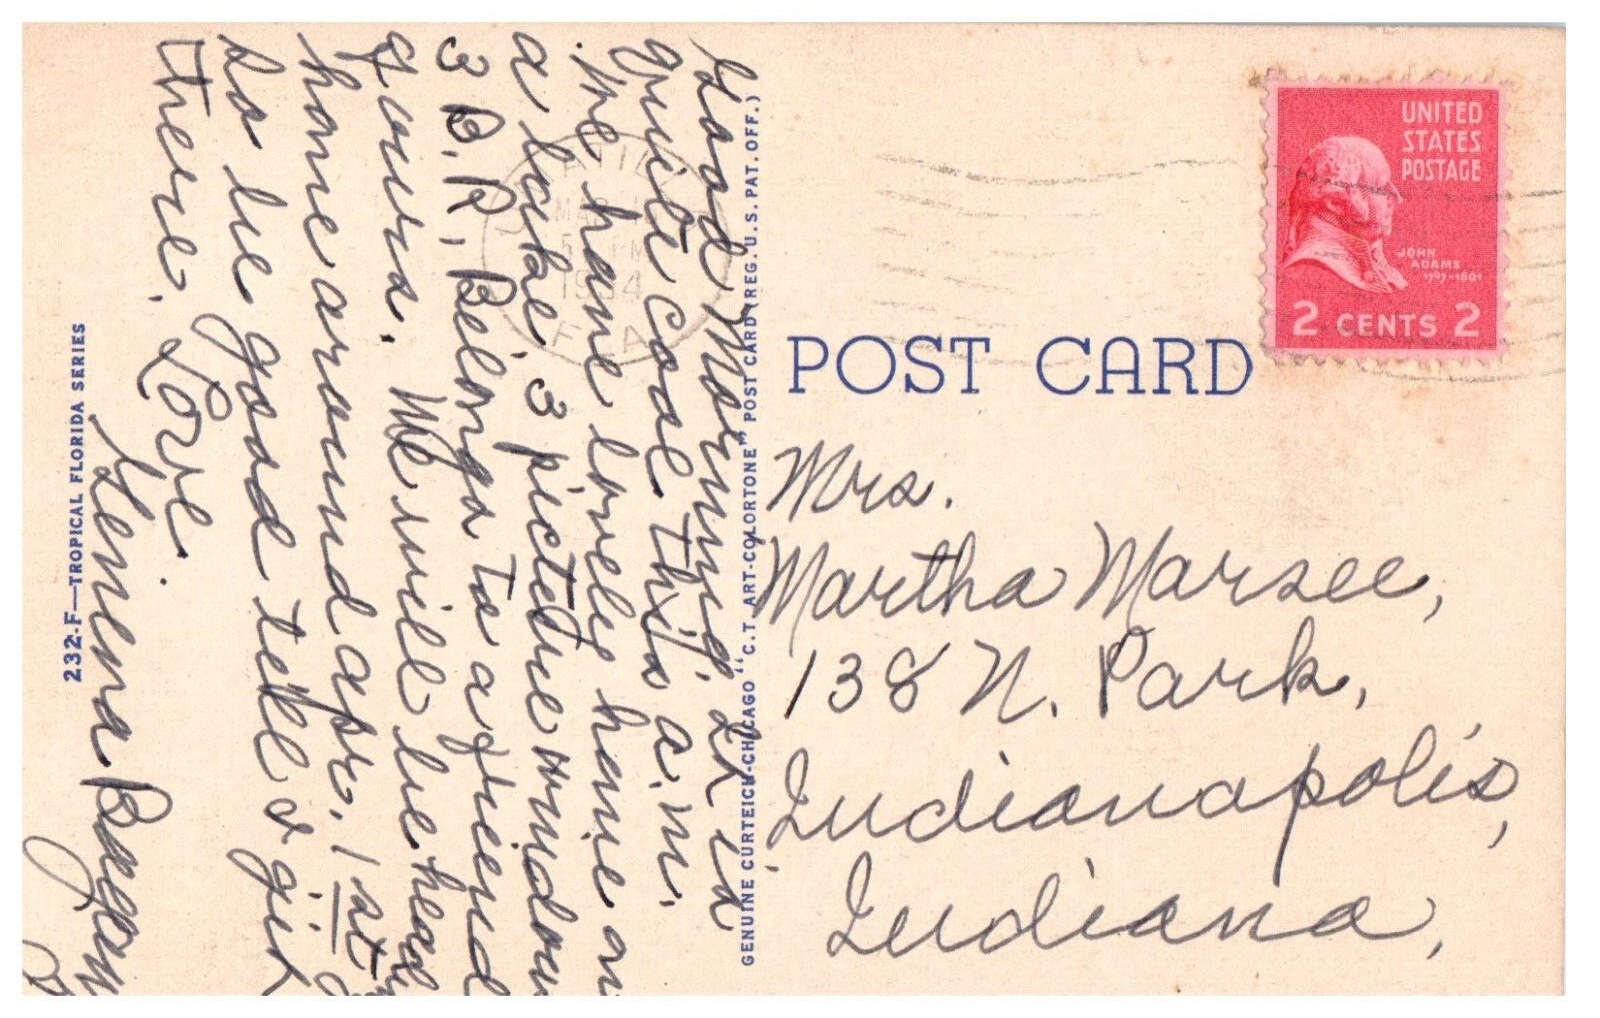 Good Morning, It is
quite cool this a.m.
We have lovely home on
a lake, 3 picture window
3 B.R, Belongs to a friend
of ours. We will be head
home around apr. 1st
So be good tell & girl
there. Love.
Geneva
232-F—TROPICAL FLORIDA SERIES
GENUINE CURTEICH-CHICAGO "C.T. ART-COLORTONE" POST CARD (REG. U.S. PAT. OFF.)
MAR
PM
1954
FLA
UNITED
STATES
POSTAGE
JOHN
ADAMS
1797-1801
2 CENTS 2
POST CARD
Mrs.
Martha Marsee,
138 N. Park,
Indianapolis,
Indiana,